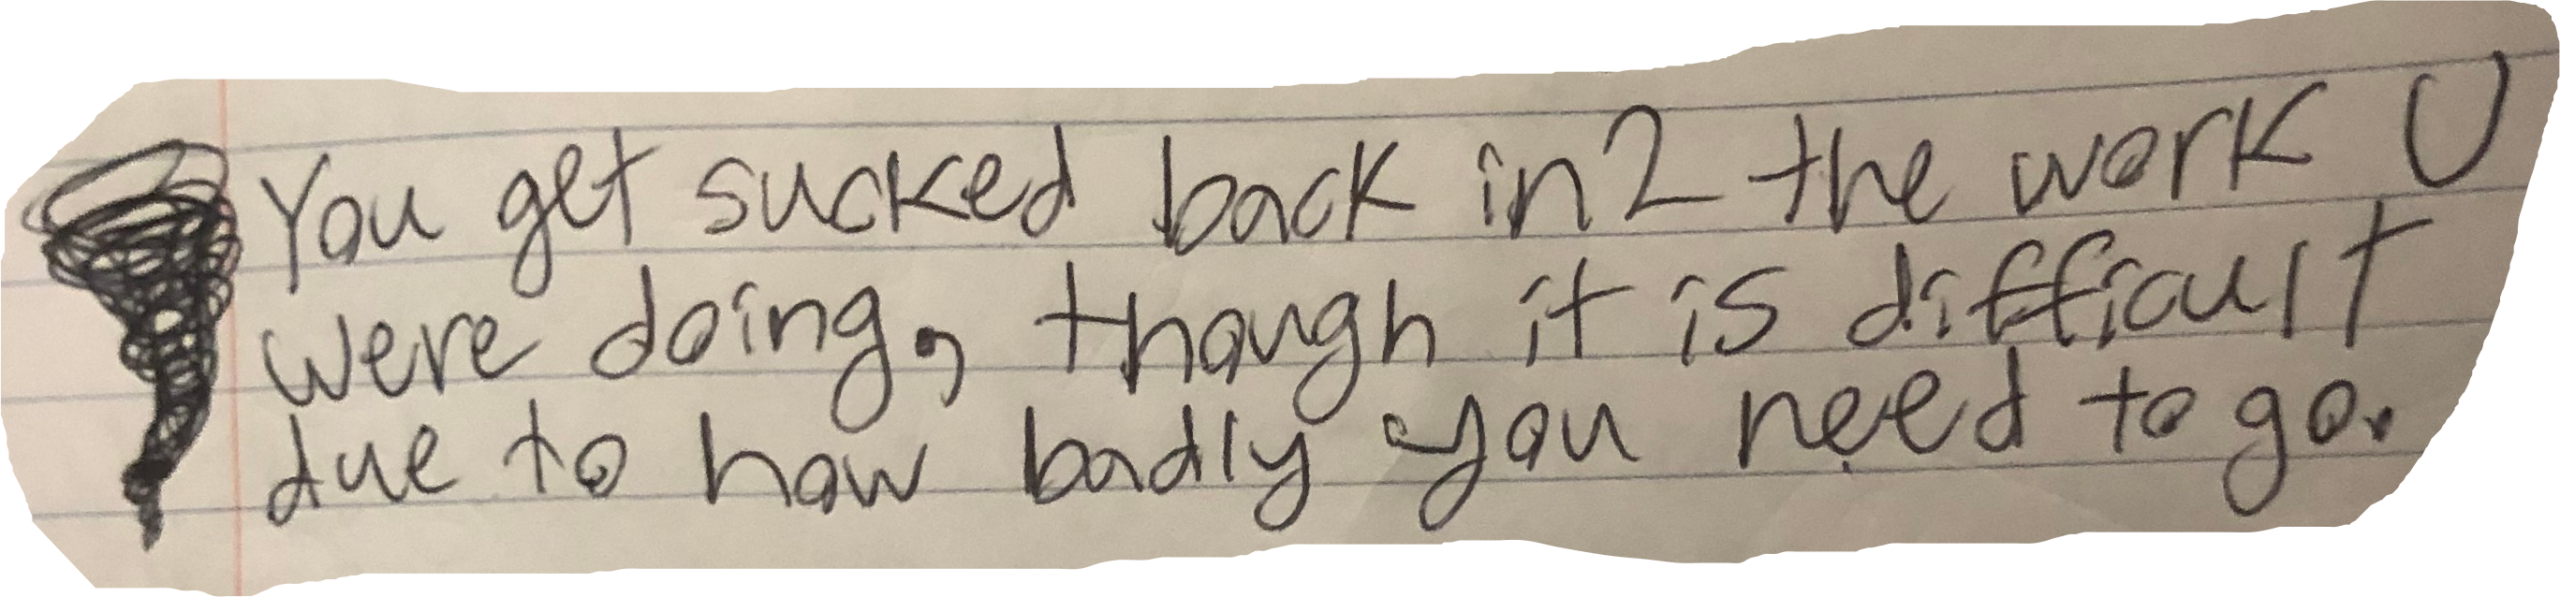 You get sucked back in2 the work U
were doing, though it is difficult
due to how badly you need to go.